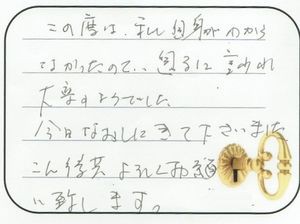 この度は、私自身がわから
なかったので、困るに言われ
大変のようでした
今日なおしにきて下さいました
こん後共よろしくお願
い致します。